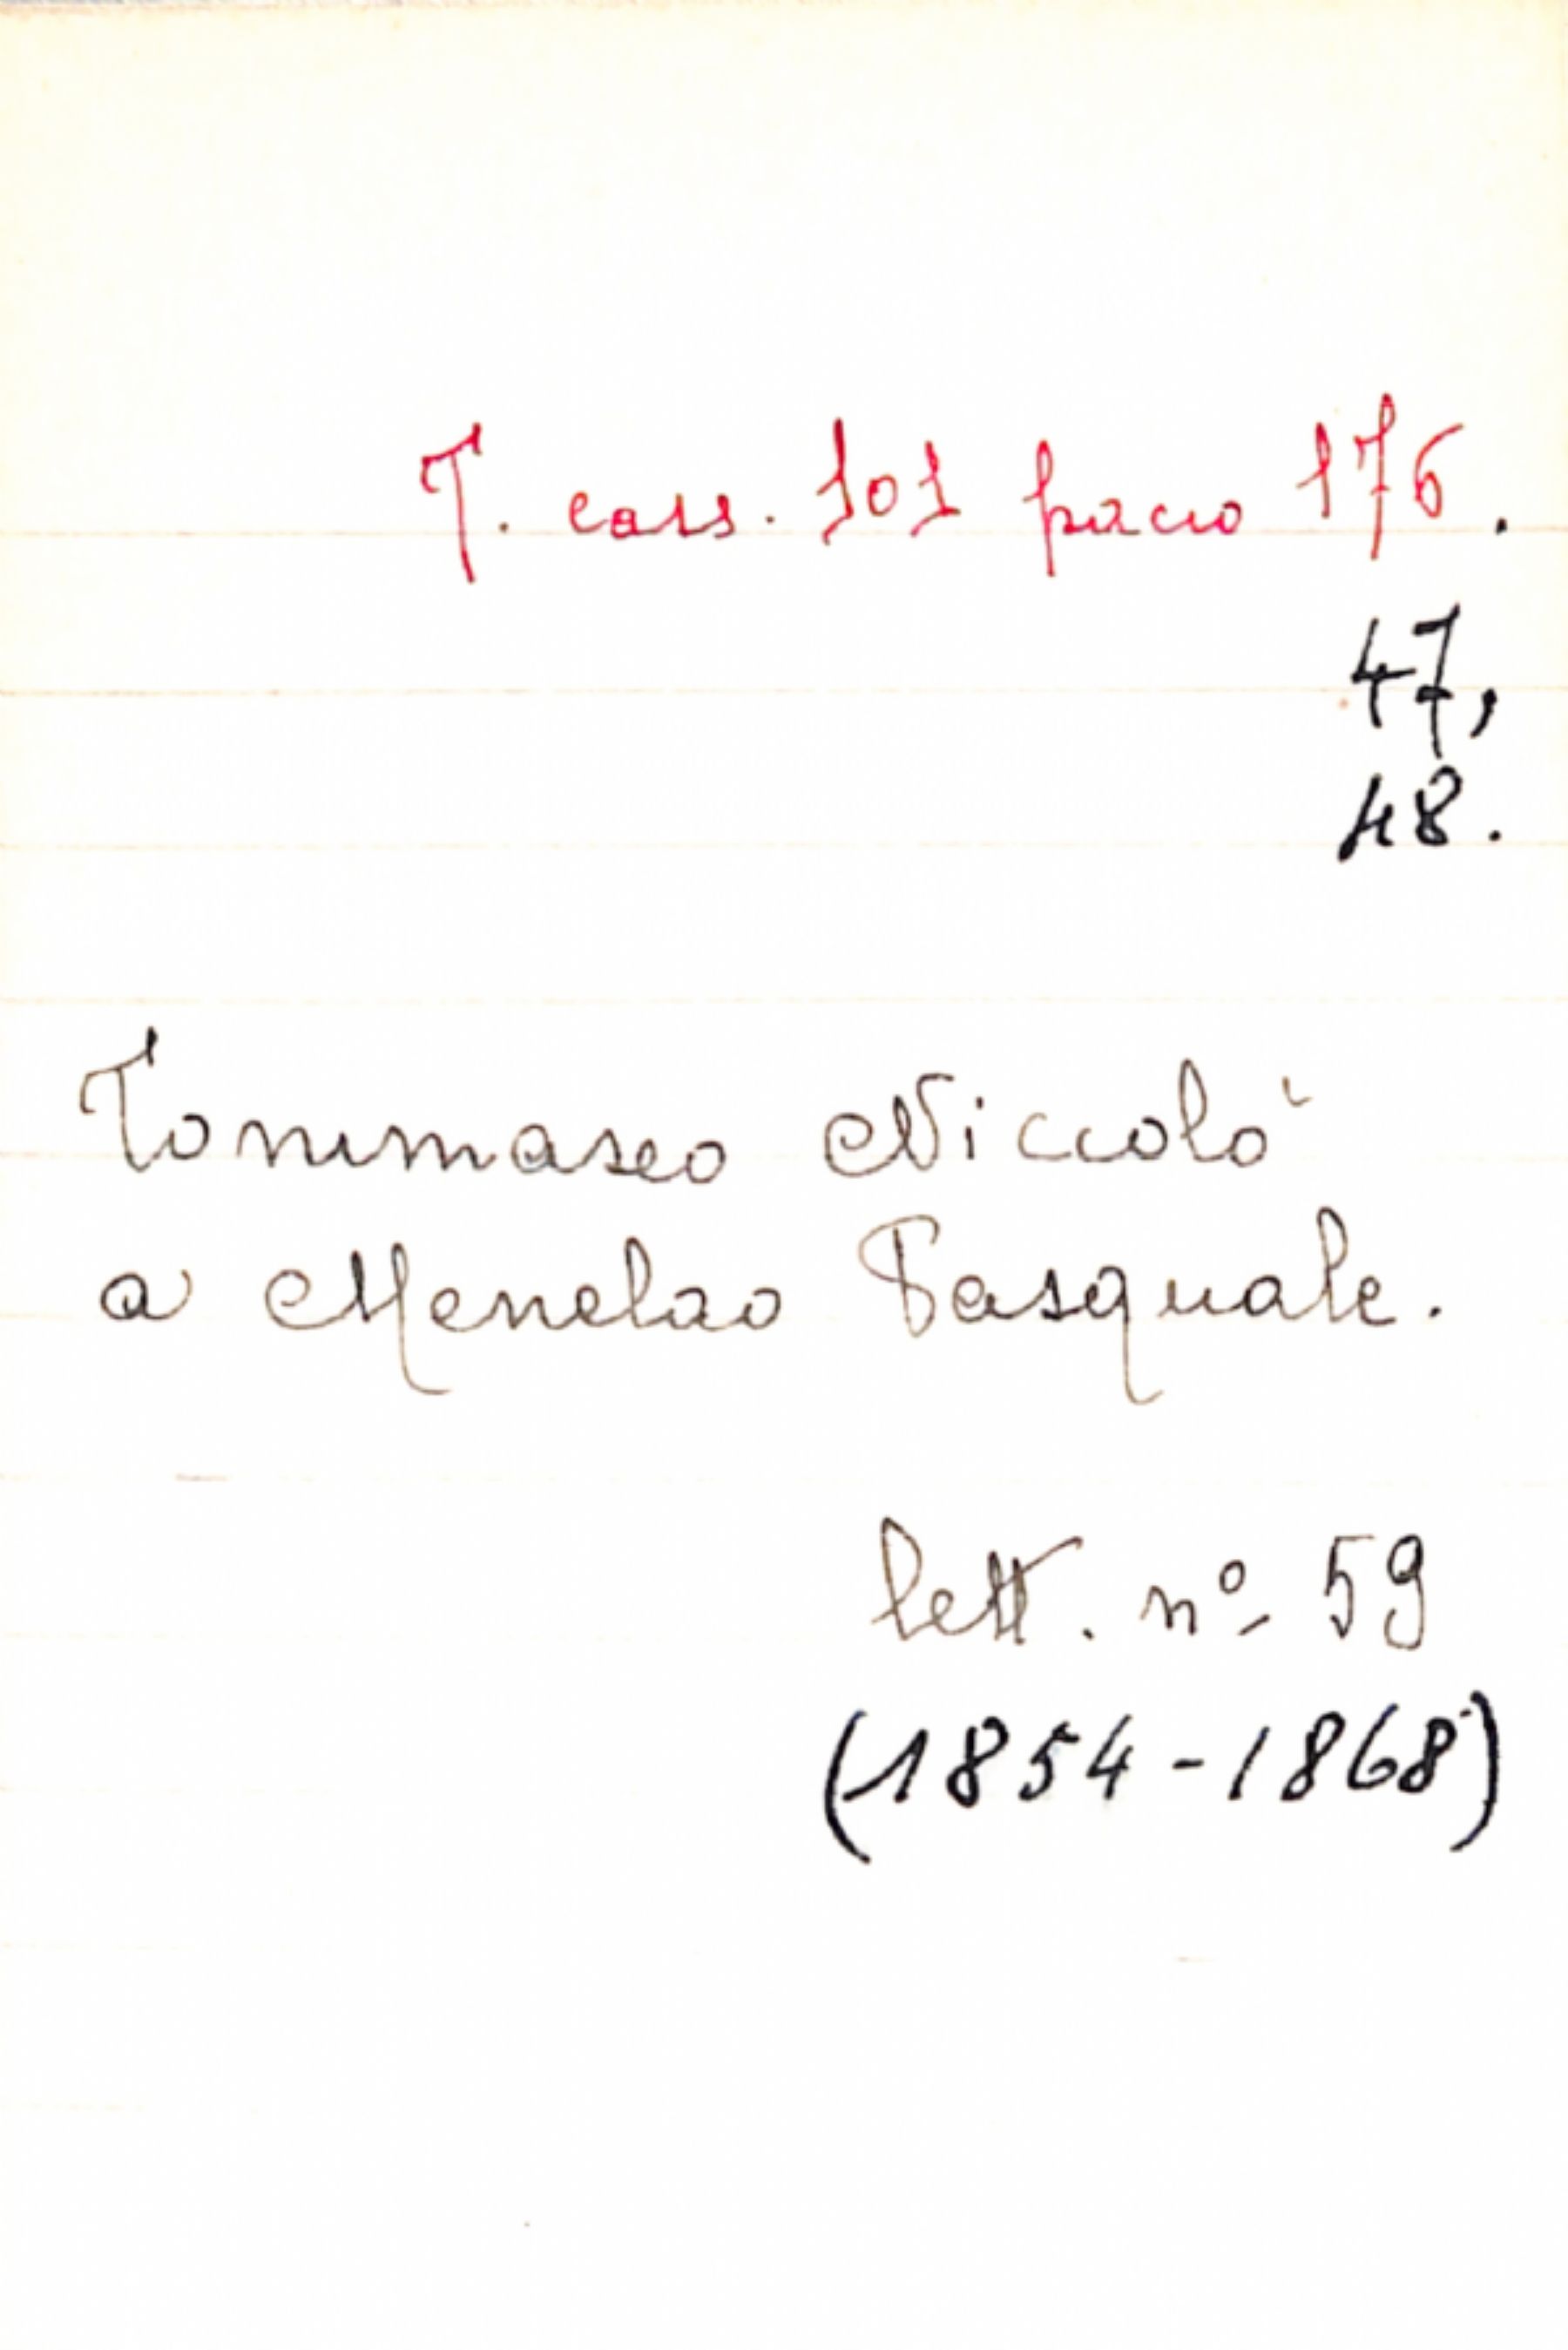 T. cass. 101 pacco 176.
47,
48.
Tommaseo Niccolò
a Menelao Pasquale.
lett. nº 59
(1854-1868)